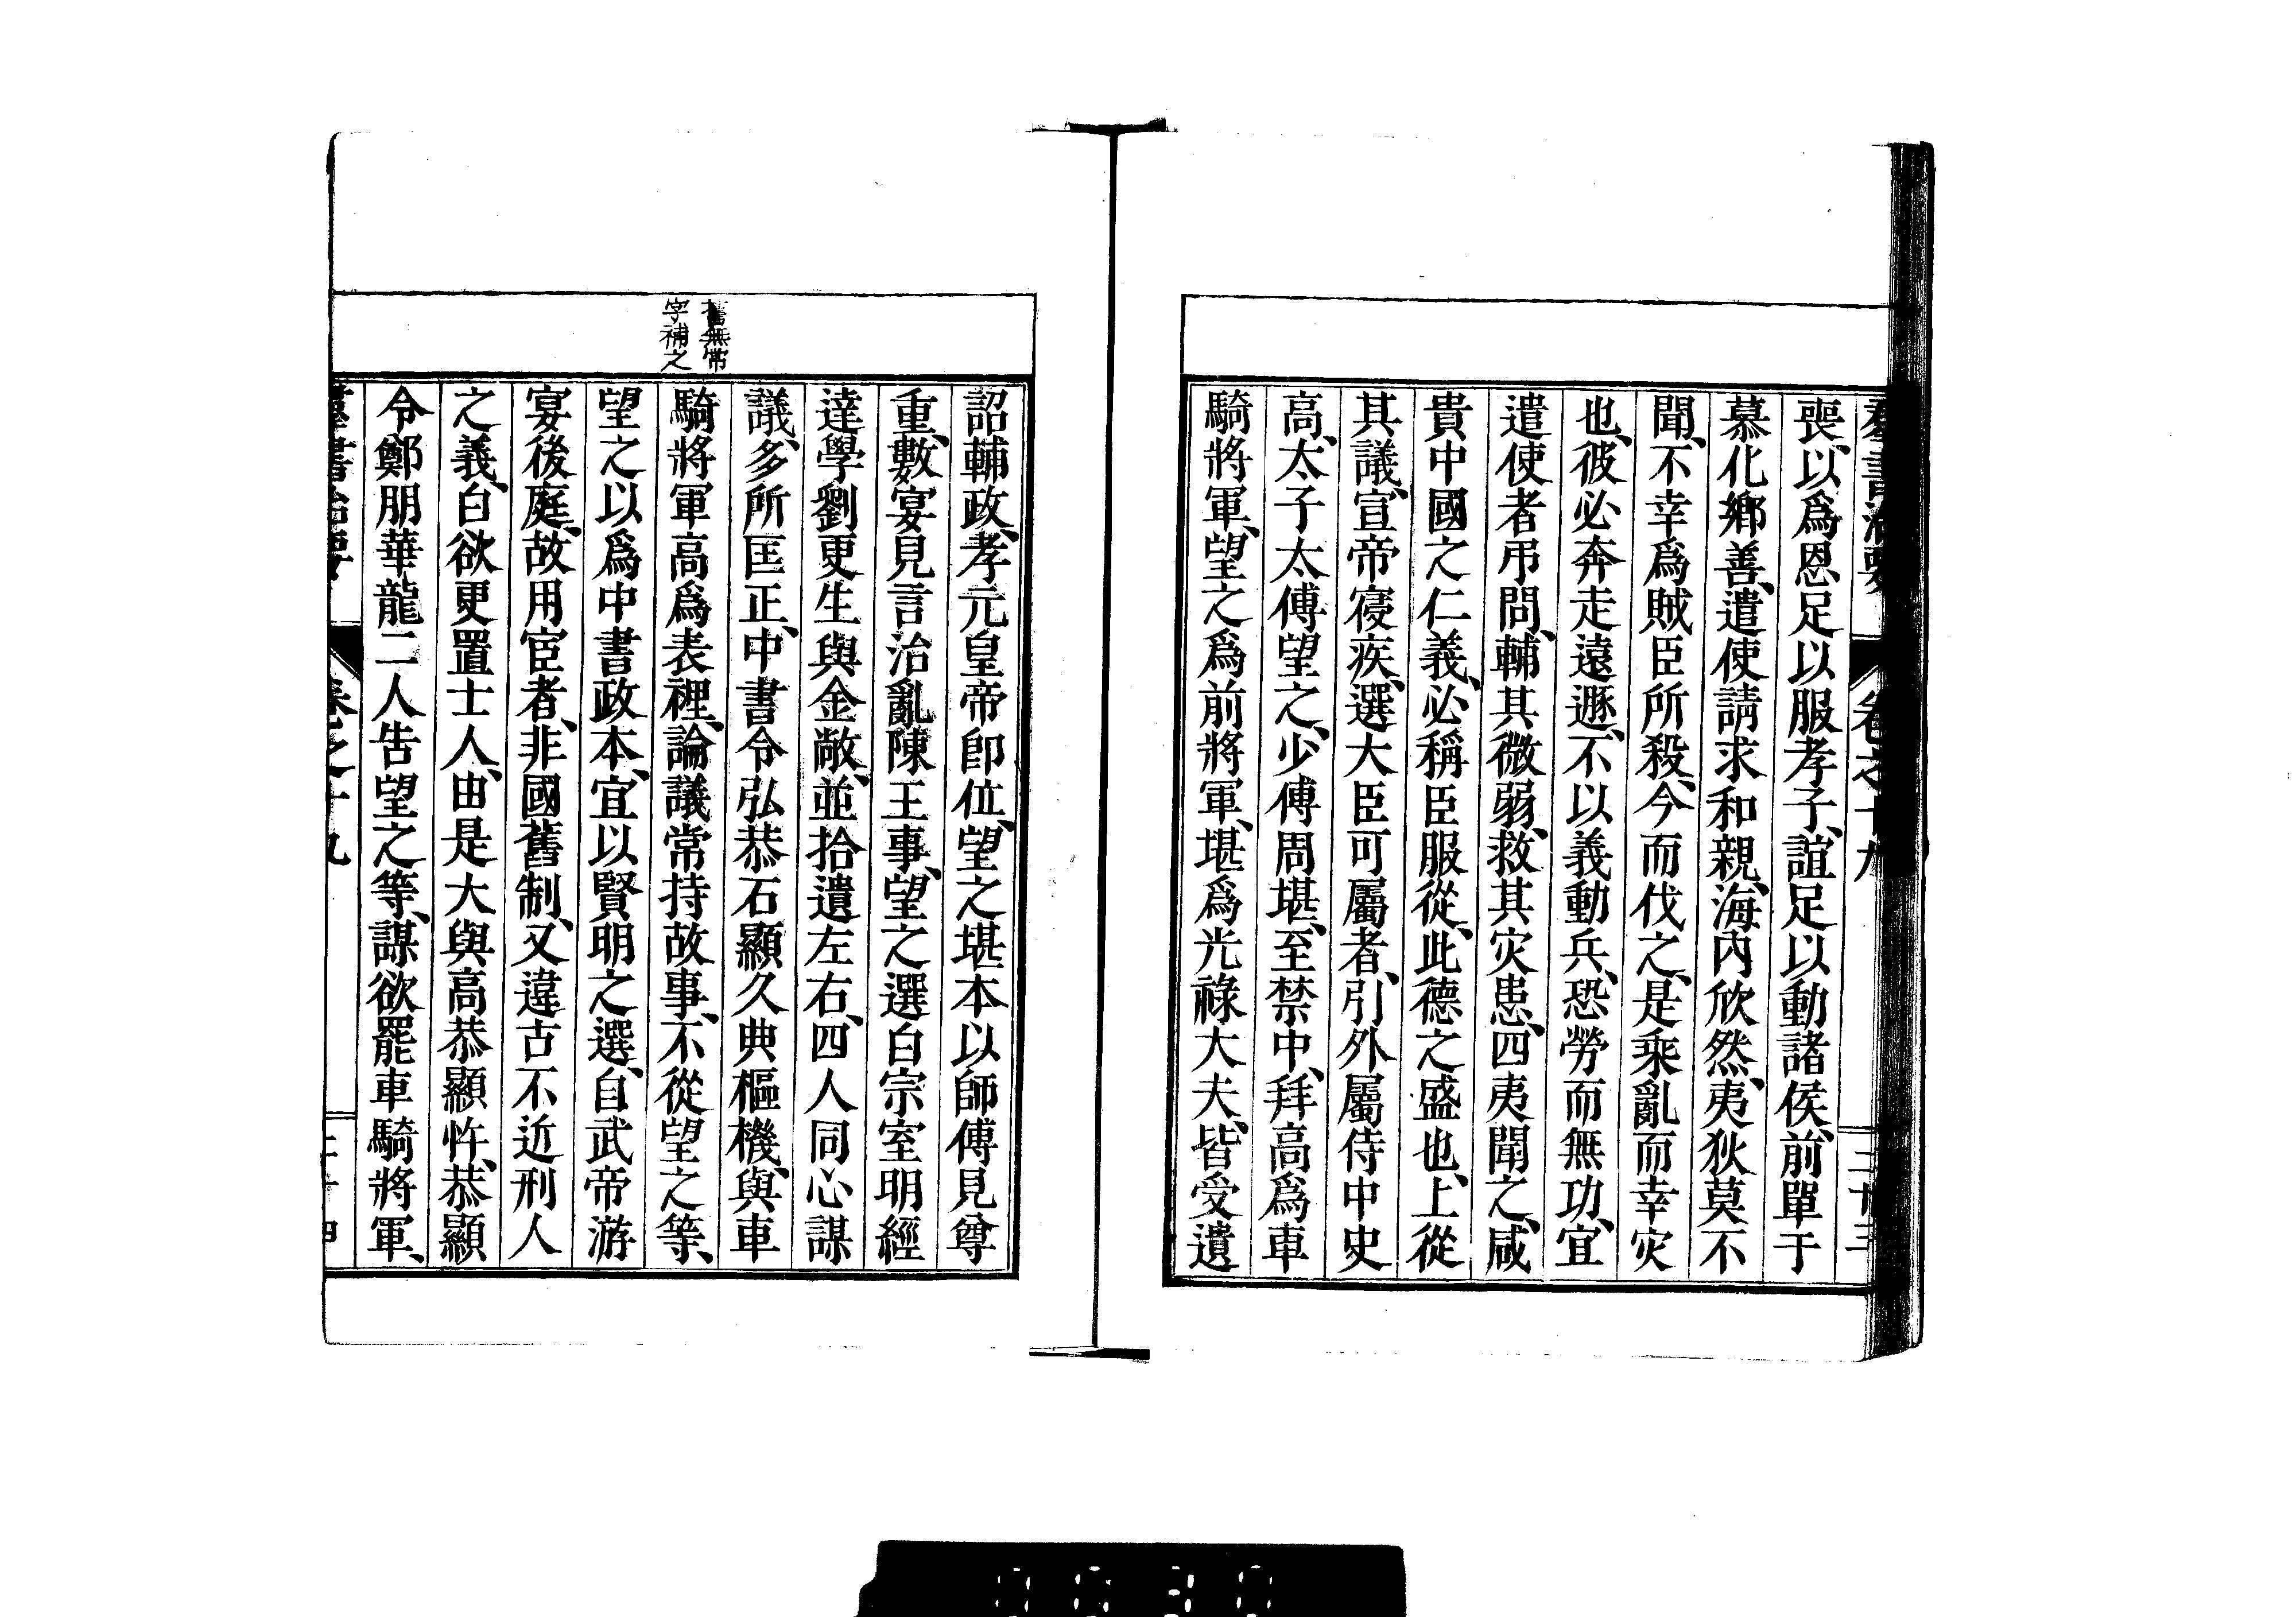 羣書治要 卷之十九 二十三
喪、以爲恩足以服孝子、誼足以動諸侯、前單于
慕化鄉善、遣使請求和親、海內欣然、夷狄莫不
聞、不幸爲賊臣所殺、今而伐之、是乘亂而幸灾
也、彼必奔走遠遯、不以義動兵、恐勞而無功、宜
遣使者弔問、輔其微弱、救其灾患、四夷聞之、咸
貴中國之仁義、必稱臣服從、此德之盛也、上從
其議、宣帝寑疾、選大臣可屬者、引外屬侍中史
高、太子太傅望之、少傅周堪、至禁中、拜高爲車
騎將軍、望之爲前將軍、堪爲光祿大夫、皆受遺
詔輔政、孝元皇帝卽位、望之堪本以師傅見尊
重、數宴見言治亂陳王事、望之選白宗室明經
達學劉更生與金敞、並拾遺左右、四人同心謀
議、多所匡正、中書令弘恭石顯久典樞機、與車
舊無常
字補之
騎將軍高爲表裡、論議常持故事、不從望之等、
望之以爲中書政本、宜以賢明之選、自武帝游
宴後庭、故用宦者、非國舊制、又違古不近刑人
之義、白欲更置士人、由是大與高恭顯忤、恭顯
令鄭朋華龍二人告望之等、謀欲罷車騎將軍、
羣書治要 卷之十九 二十四